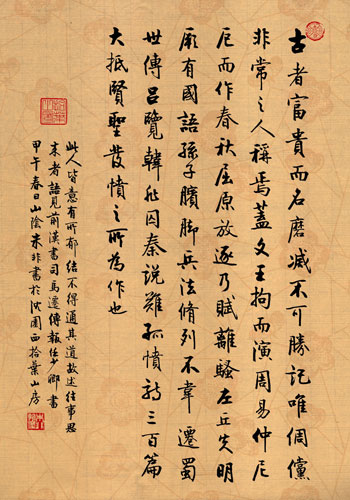 古者富貴而名磨滅不可勝記唯倜儻
非常之人稱焉蓋文王拘而演周易仲尼
厄而作春秋屈原放逐乃賦離騷左丘失明
厥有國語孫子臏腳兵法脩列不韋遷蜀
世傳呂覽韓非囚秦說難孤憤詩三百篇
大抵賢聖發憤之所為作也
此人皆意有所郁結不得通其道故述往事思
來者語見前漢書司馬遷傳報任少卿書
甲午春日山陰朱非書於沈園西拾葉山房